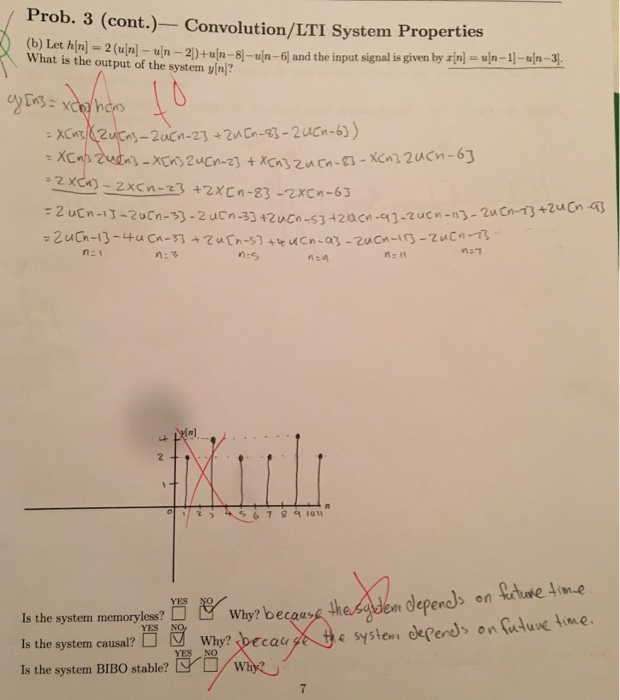 Prob. 3 (cont.)— Convolution/LTI System Properties
(b) Let h[n] = 2 (u[n] − u[n − 2])+u[n−8]−u[n−6] and the input signal is given by x[n] = u[n−1]−u[n−3].
What is the output of the system y[n]?
y[n] = x[n] h[n]
= x[n] (2u[n]-2u[n-2] +2u[n-8]-2u[n-6])
= x[n] 2u[n] - x[n] 2u[n-2] + x[n] 2u[n-8] - x[n] 2u[n-6]
= 2x[n] - 2x[n-2] +2x[n-8] -2x[n-6]
= 2u[n-1]-2u[n-3]-2u[n-3]+2u[n-5]+2u[n-9]-2u[n-11]-2u[n-7]+2u[n-9]
= 2u[n-1]-4u[n-3]+2u[n-5]+4u[n-9]-2u[n-11]-2u[n-7]
n=1 n=3 n=5 n=9 n=11 n=7
y[n]
4
2
1
n
0 1 2 3 4 5 6 7 8 9 10 11
YES NO
Is the system memoryless? Why? because the system depends on future time
YES NO
Is the system causal? Why? because the system depends on future time.
YES NO
Is the system BIBO stable? Why?
7